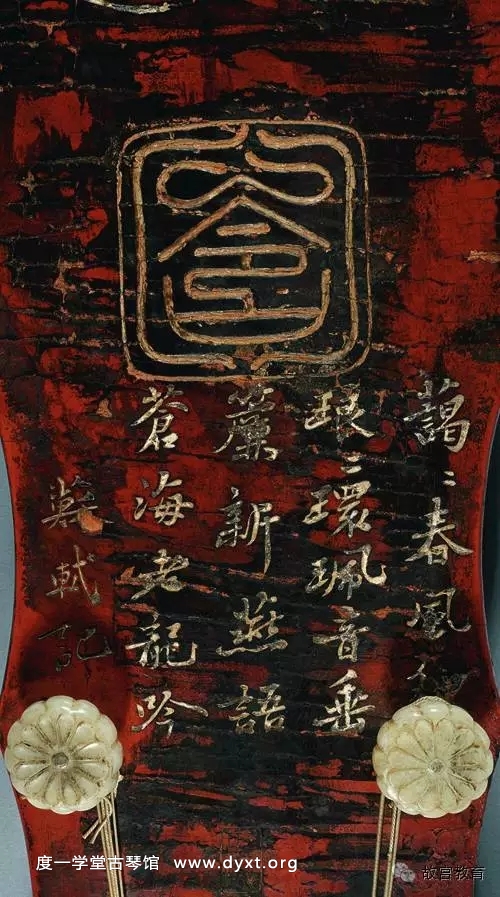 藹〻春風細
琅〻環珮音垂
簾新燕語
蒼海老龍吟
蘇軾記
度一学堂古琴馆 www.dyxt.org
故宫教育